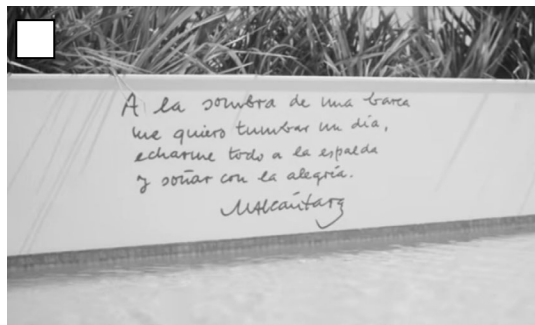 A la sombra de una barca
me quiero tumbar un día,
echarme todo a la espalda
y soñar con la alegría.
MAlcántara